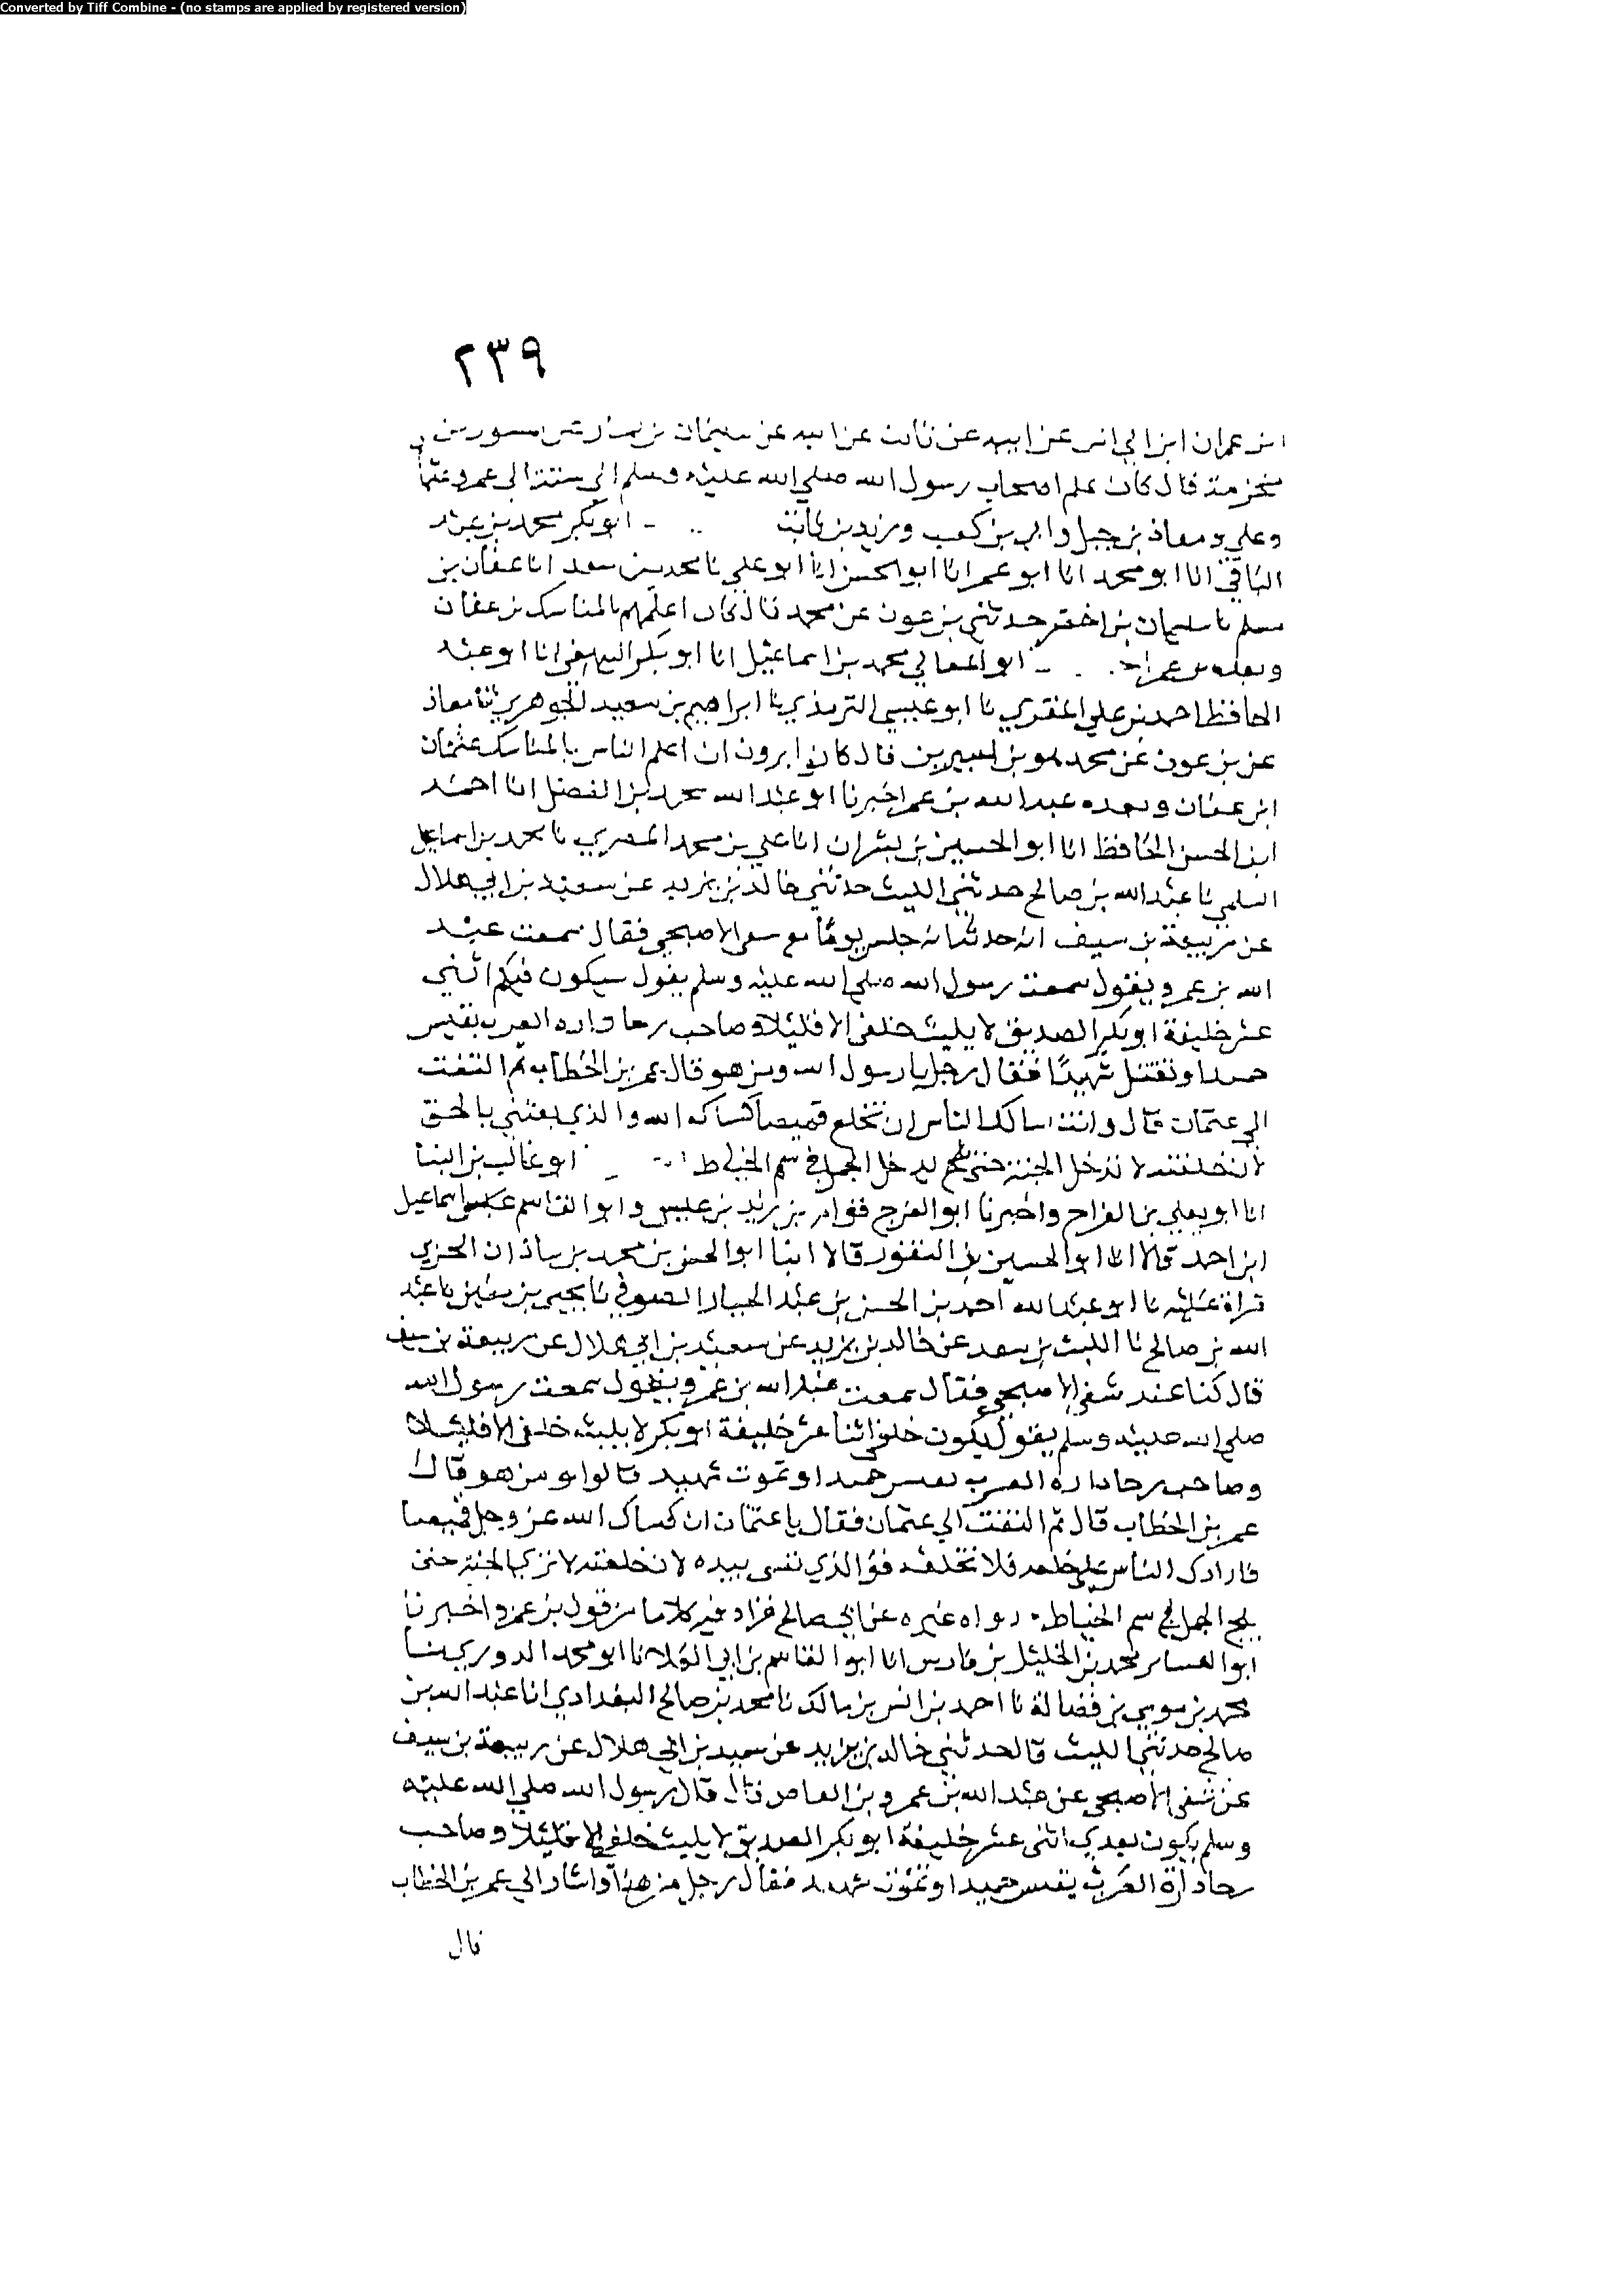 Converted by Tiff Combine - (no stamps are applied by registered version)
٢٣٩
ابن عمران ابن ابي انس عن ابيه عن عن ابيه عن سليمان بن يسار عن مسور بن
مخرمة قال كان علم اصحاب رسول الله صلى الله عليه وسلم الى ستة الى عمر وعثمان
وعلي ومعاذ بن جبل وابي بن كعب وزيد بن ثابت ابو بكر محمد بن عبد
الباقي انا ابو محمد انا ابو عمر انا ابو الحسن انا ابو علي نا محمد بن سعد انا عفان بن
مسلم نا سليمان بن اخضر حدثني بن عون عن محمد قال كان اعلمهم بالمناسك بن عفان
وبعده بن عمر ابو المعالي محمد بن اسماعيل انا ابو بكر البيهقي انا ابو عبد
الحافظ احمد بن علي المقري نا ابو عيسى الترمذي نا ابراهيم بن سعيد الجوهري ثنا معاذ
عن بن عون عن محمد هو بن سيرين قال كانوا يرون ان اعلم الناس بالمناسك عثمان
ابن عفان وبعده عبد الله بن عمر اخبرنا ابو عبد الله محمد بن الفضل انا احمد
ابن الحسن الحافظ انا ابو الحسين بن بشران انا علي بن محمد المصري نا محمد بن اسماعيل
السلمي نا عبد الله بن صالح حدثني الليث حدثني خالد بن يزيد عن سعيد بن ابي هلال
عن ربيعة بن سيف انه حدثه انه جلس يوما مع سفى الاصبحي فقال سمعت عبد
الله بن عمرو يقول سمعت رسول الله صلى الله عليه وسلم يقول سيكون فيكم اثني
عشر خليفة ابو بكر الصديق لا يلبث خلفي الا قليلا وصاحب رحا داره العرب يعيش
حميدا ويقتل شهيدا فقال رجل يا رسول الله ومن هو قال عمر بن الخطاب ثم التفت
الى عثمان قال وانت سالك الناس ان تخلع قميصا كساكه الله والذي بعثني بالحق
لان خلعته لا تدخل الجنة حتى يدخل الجمل في سم الخياط ابو غالب بن البنا
انا ابو يعلي بن الفراح واخبرنا ابو الفرج قوام بن زيد بن عيسى وابو القاسم اسماعيل
ابن احمد قالا انا ابو الحسين بن النقور قالا انبا ابو الحسن بن محمد بن شاذان الحربي
قراة عليه نا ابو عبد الله احمد بن الحسن بن عبد الجبار الصوفي نا يحيى بن معين نا عبد
الله بن صالح نا الليث بن سعد عن خالد بن يزيد عن سعيد بن ابي هلال عن ربيعة بن سيف
قال كنا عند شفى الاصبحي فقال سمعت عبد الله بن عمرو يقول سمعت رسول الله
صلى الله عليه وسلم يقول يكون خلفي اثنا عشر خليفة ابو بكر لا يلبث خلفي الا قليلا
وصاحب رحا داره العرب يعيش حميدا ويموت شهيد قالوا ومن هو قال
عمر بن الخطاب قال ثم التفت الي عثمان فقال يا عثمان ان كساك الله عز وجل قميصا
فارادك الناس على خلعه فلا تخلعه فوالذي نفسى بيده لان خلعته لا ترى الجنة حتى
يلج الجمل في سم الخياط رواه غيره عن ابي صالح فزاد فيه كلاما من قول بن عمرو اخبرنا
ابو العساير محمد بن الخليل بن فارس انا ابو القاسم بن ابي العلاء نا ابو محمد الدوري
محمد بن موسى بن فضالة نا احمد بن انس بن مالك نا محمد بن صالح البغدادي انا عبد الله بن
صالح حدثني الليث قال حدثني خالد بن يزيد عن سعيد بن ابي هلال عن ربيعة بن سيف
عن شفى الاصبحي عن عبد الله بن عمرو بن العاص قال قال رسول الله صلي الله عليه
وسلم يكون بعدي اثنى عشر خليفة ابو بكر الصديق لا يلبث خلفي الا قليلا وصاحب
رحا دارة العرب يعيش حميدا ويموت شهيد فقال رجل من هذا واشار الي عمر بن الخطاب
قال